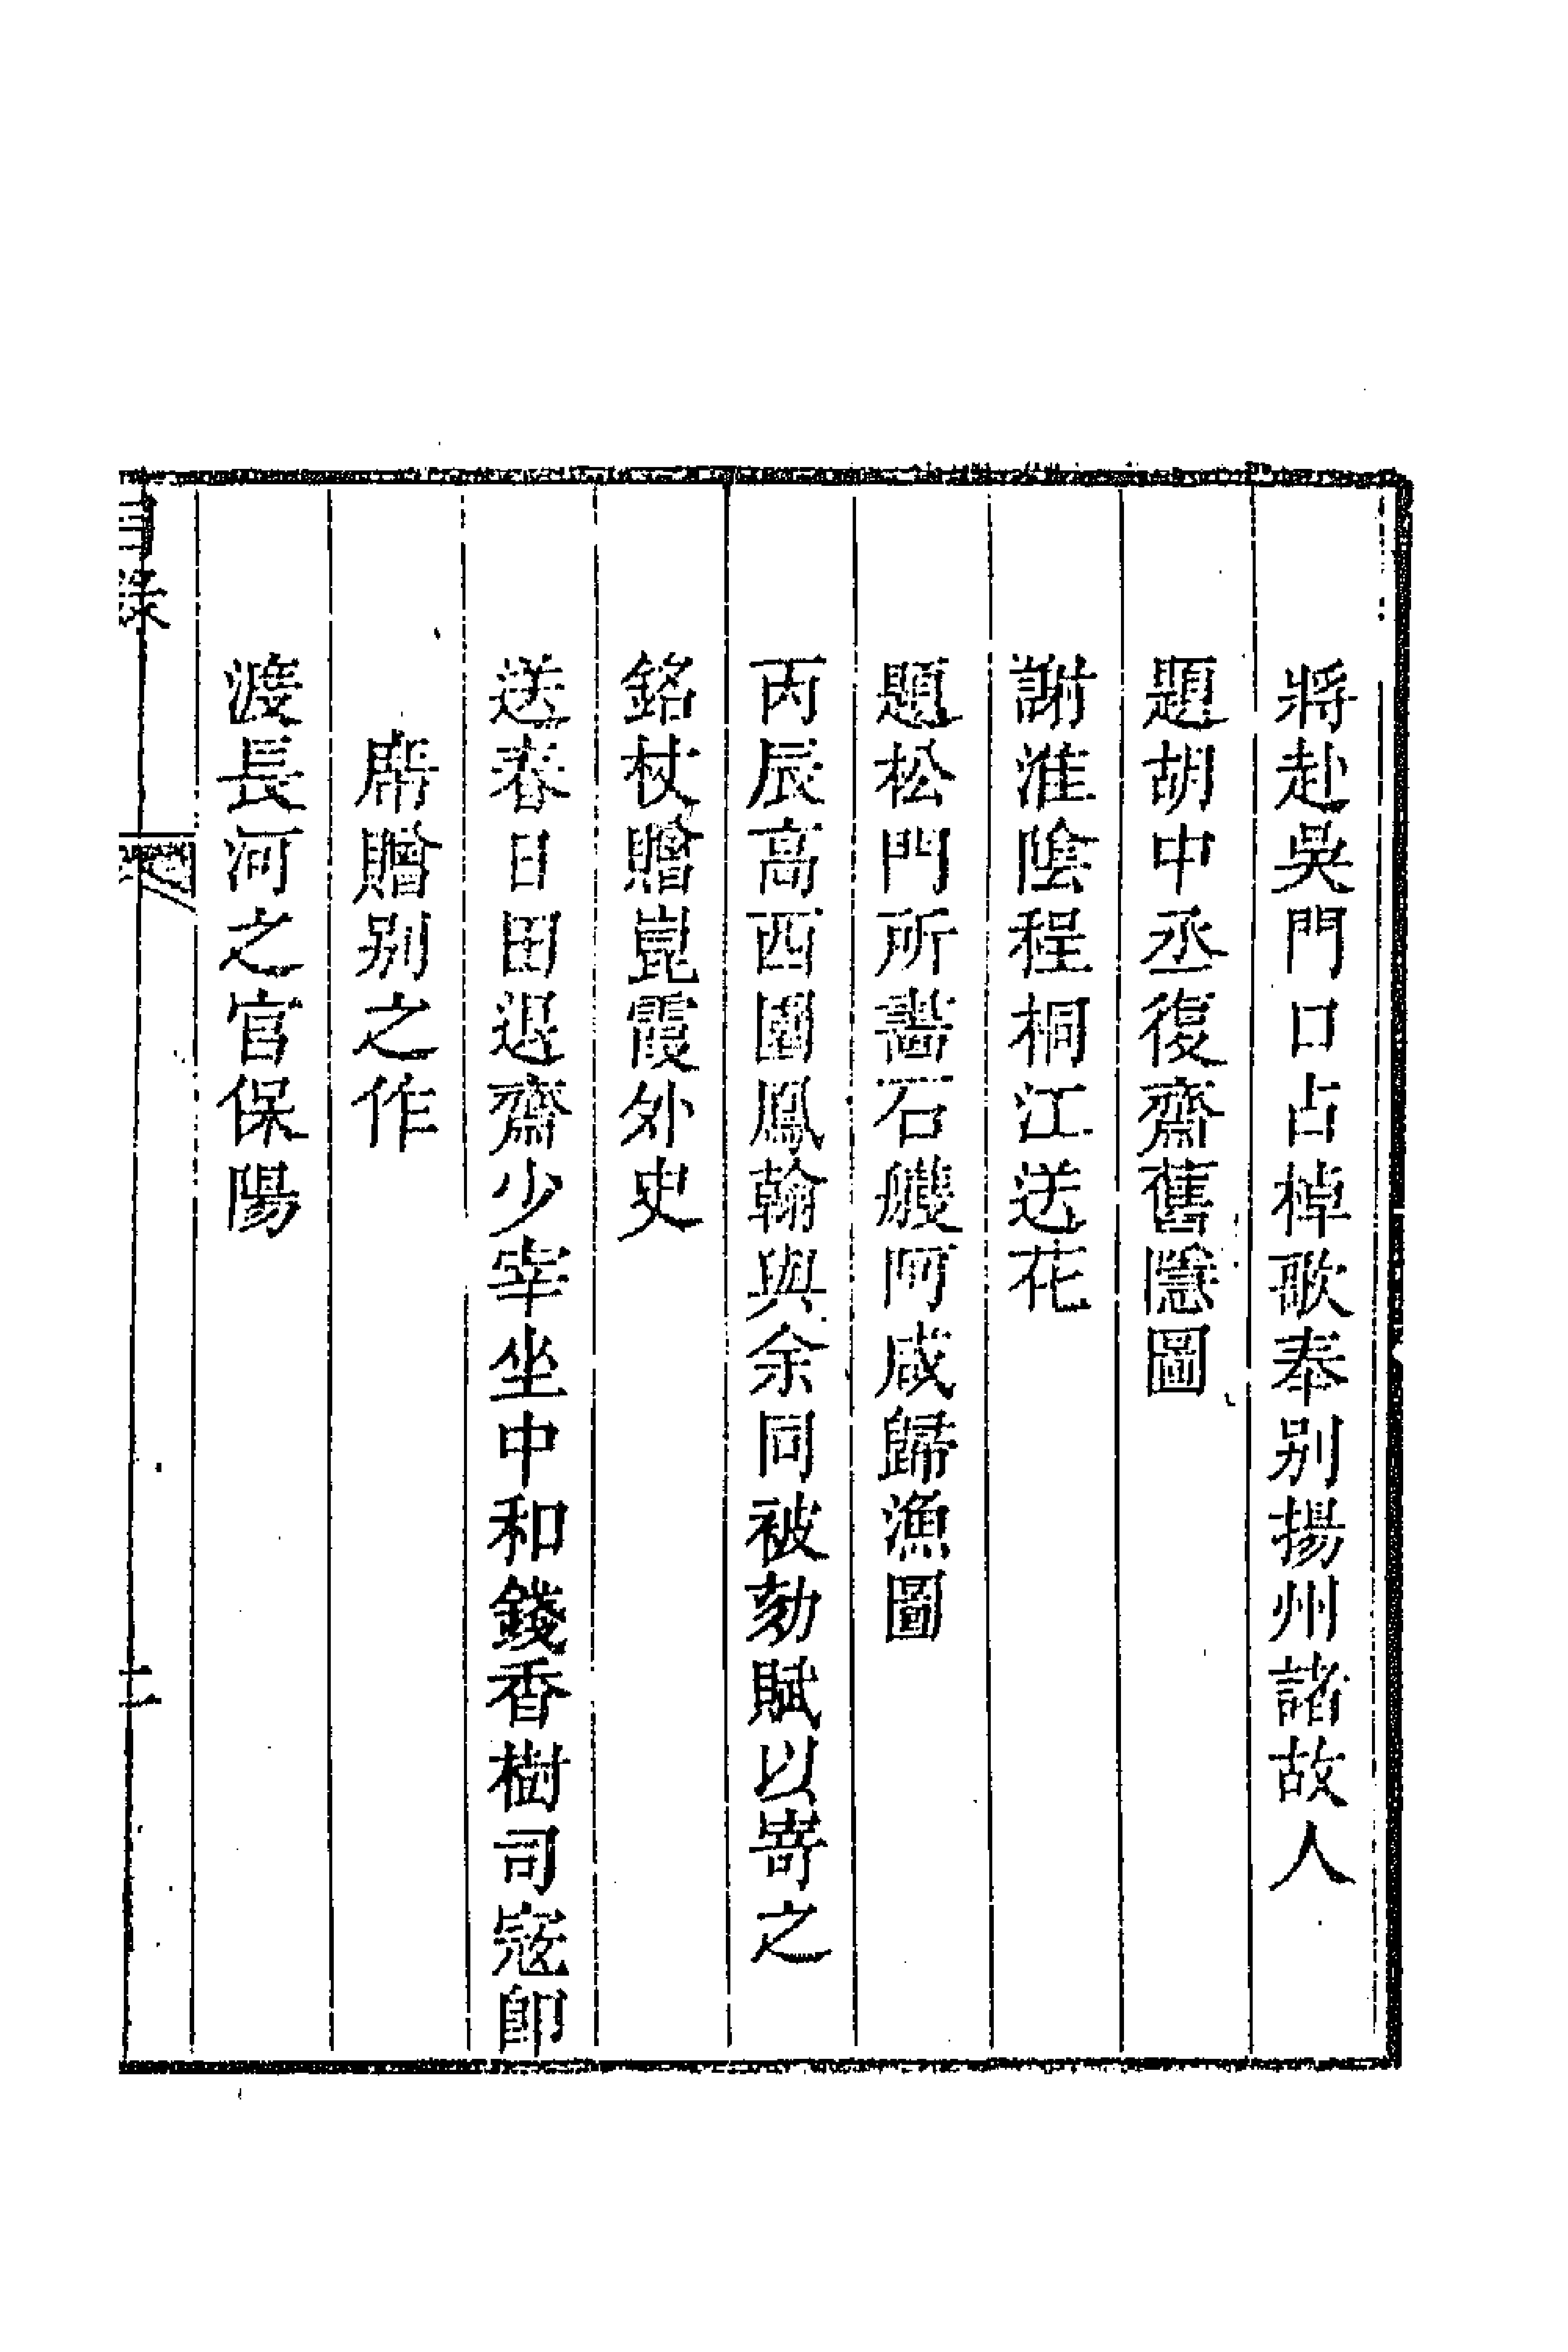 將赴吳門口占棹歌奉别揚州諸故人
題胡中丞復齋舊隱圖
謝淮陰程桐江送花
題松門所畫石艭阿咸歸漁圖
丙辰高西園鳳翰與余同被劾賦以嵜之
銘杖贈崑霞外史
送春日田退齋少宰坐中和錢香樹司寇卽
席贈别之作
渡長河之官保陽
目錄
二